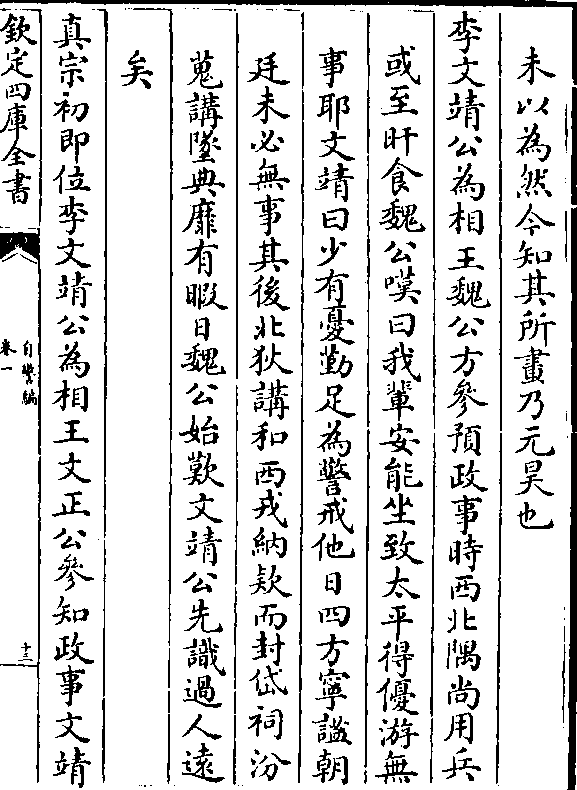 未以為然今知其所畫乃元昊也
李文靖公為相王魏公方參預政事時西北隅尚用兵
或至旰食魏公嘆曰我輩安能坐致太平得優游無
事耶文靖曰少有憂勤足為警戒他日四方寧謐朝
廷未必無事其後北狄講和西戎納款而封岱祠汾
蒐講墜典靡有暇日魏公始歎文靖公先識過人遠
矣
真宗初即位李文靖公為相王文正公參知政事文靖
欽定四庫全書
自警編
卷一
十三